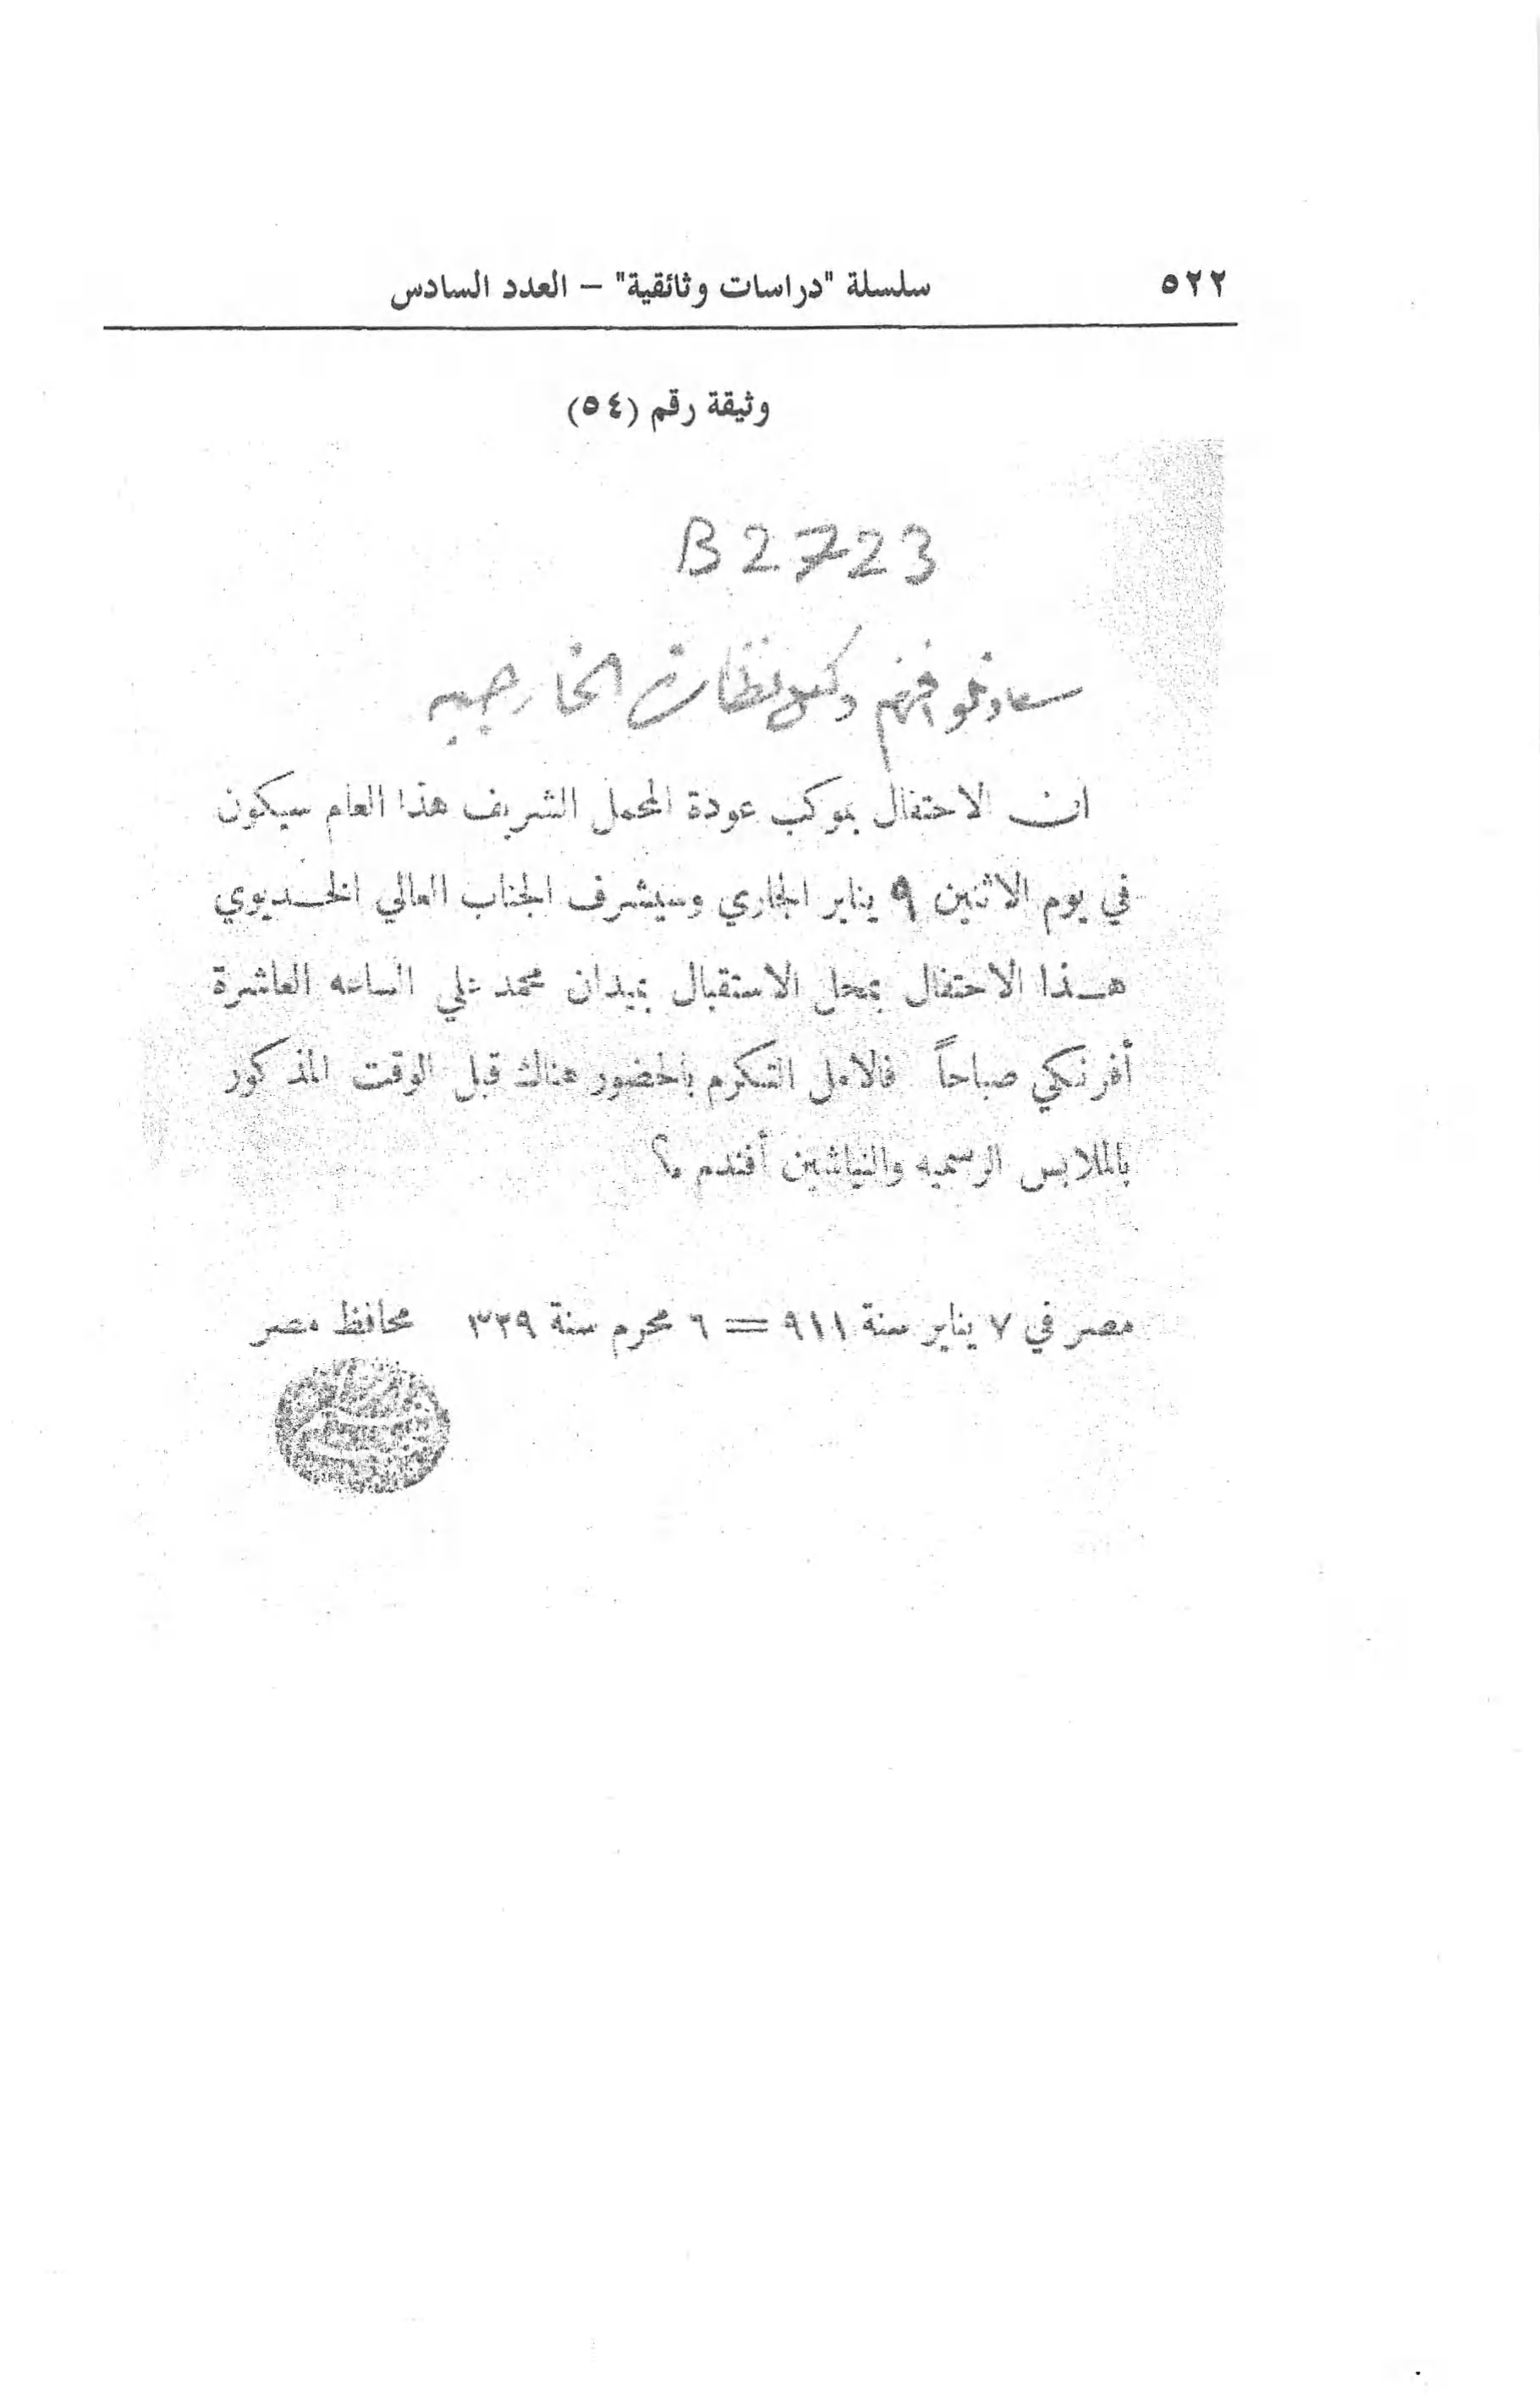 ٥٢٢ سلسلة "دراسات وثائقية" – العدد السادس
وثيقة رقم (٥٤)
B 2723
سعادتلو افندم وكيل نظارة الخارجيه
ان الاحتفال بموكب عودة المحمل الشريف هذا العام سيكون
في يوم الاثنين ٩ يناير الجاري وسيشرف الجناب العالي الخـديوي
هـذا الاحتفال بمحل الاستقبال بميدان محمد علي الساعه العاشرة
أفرنكي صباحاً فالامل التكرم بالحضور هناك قبل الوقت المذكور
بالملابس الرسميه والنياشين أفندم ؟
مصر في ٧ يناير سنة ٩١١ = ٦ محرم سنة ٣٢٩ محافظ مصر